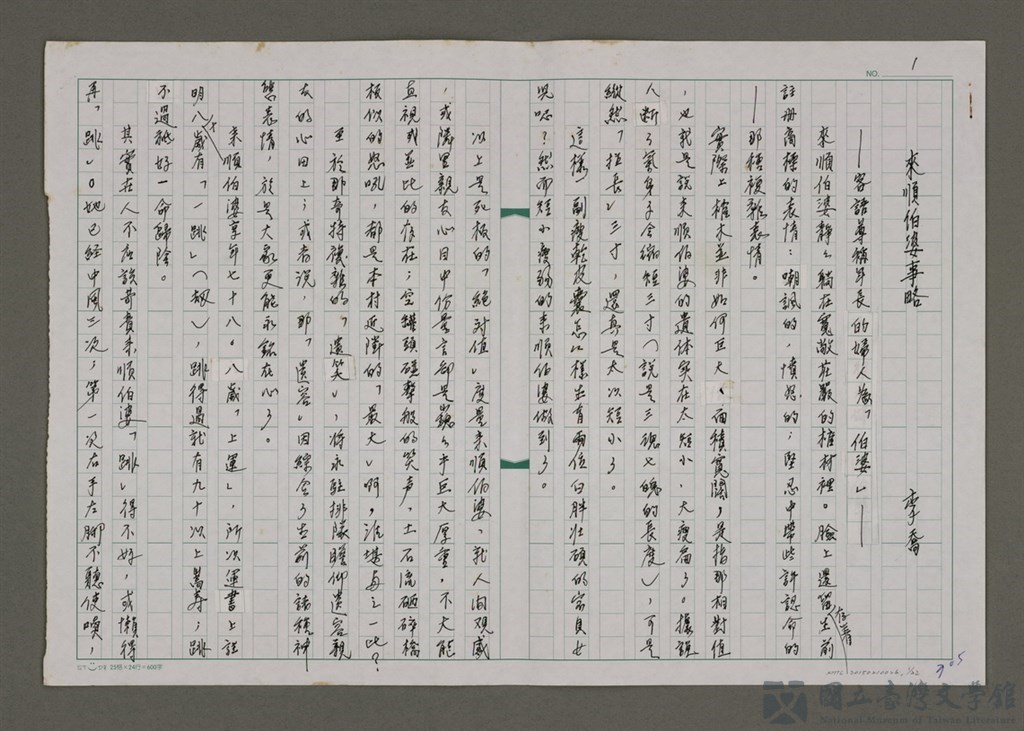 NO. 1
來順伯婆事略
李喬
——客語尊稱年長的婦人為「伯婆」——
來順伯婆靜々躺在寬敞莊嚴的棺材裡。臉上還留存着生前
註冊商標的表情:嘲諷的,憤怒的;堅忍中帶些許認命的
——那種複雜表情。
實際上棺木並非如何巨大、面積寬闊,是指那相對值
,也就是說來順伯婆的遺体実在太短小、太瘦扁了。據說
人斷了氣身子会縮短三寸(說是三魂七魄的長度),可是
縱然「拉長」三寸,還真是太次短小了。
這樣一副瘦乾皮囊怎么樣生育兩位白胖壯碩的宝貝女
兒呢?然而短小瘦弱的來順伯婆做到了。
以上是死板的「絕对值」度量來順伯婆,就人间观感
,或隣里親友心目中份量言却是巍々乎巨大厚重,不大能
直視或並比的存在;空罐頭磋擊般的笑声,土石流砸碎橋
樑似的怒吼,都是本村近隣的「最大」啊,誰堪与之一比?
至於那奇特議雜的「遺笑」,將永駐排隊瞻仰遺容親
友的心田上;或者說,那「遺容」因綜合了生前的諸種神
態表情,於是大家更能永銘在心了。
來順伯婆享年七十八。八歲「上運」,所次運書上註
明八十歲有「一跳」(劫),跳得過就有九十以上萬壽;跳
不過祇好一命歸陰。
其實在人不在該苛責來順伯婆「跳」得不好,或懶得
再「跳」。她已經中風三次;第一次右手左腳不聽使喚,
25格×24行=600字
國立臺灣文學館
National Museum of Taiwan Literature